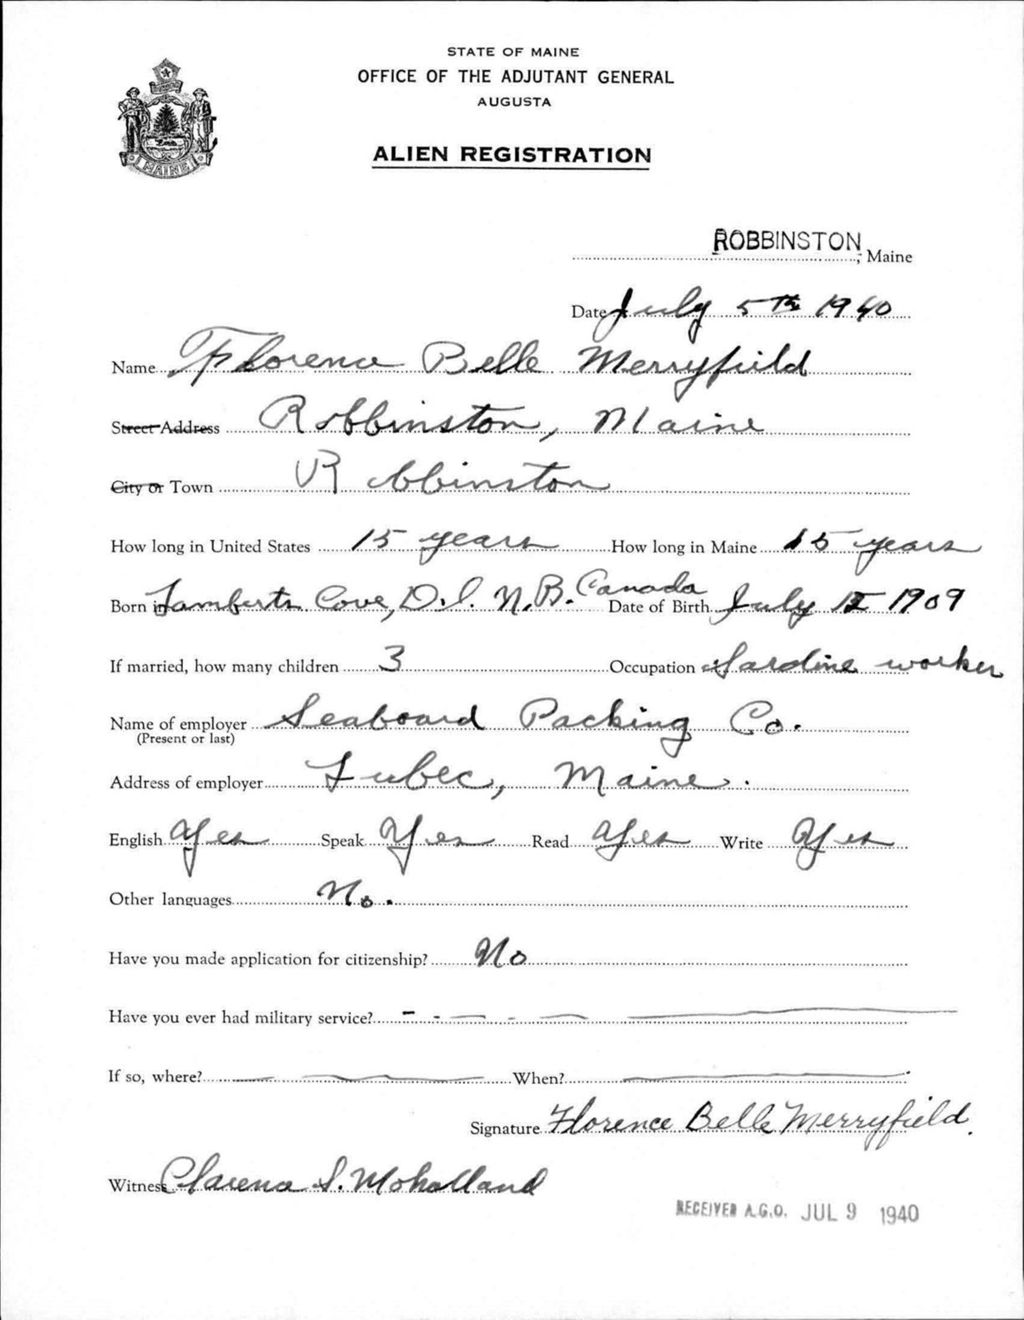 STATE OF MAINE
OFFICE OF THE ADJUTANT GENERAL
AUGUSTA
MAINE
ALIEN REGISTRATION
ROBBINSTON, Maine
Date July 5th 1940
Name Florence Belle Merryfield
Street Address Robbinston, Maine
City or Town Robbinston
How long in United States 15 years How long in Maine 15 years
Born in Lamberts Cove, D.I. N.B. Canada Date of Birth July 1909
If married, how many children 3 Occupation Sardine worker
Name of employer Seaboard Packing Co.
(Present or last)
Address of employer Lubec, Maine.
English Yes Speak Yes Read Yes Write Yes
Other languages No.
Have you made application for citizenship? No
Have you ever had military service? - - — - — —
If so, where? — — When? —
Signature Florence Belle Merryfield.
Witness S. Moholland
RECEIVED A.G.O. JUL 9 1940